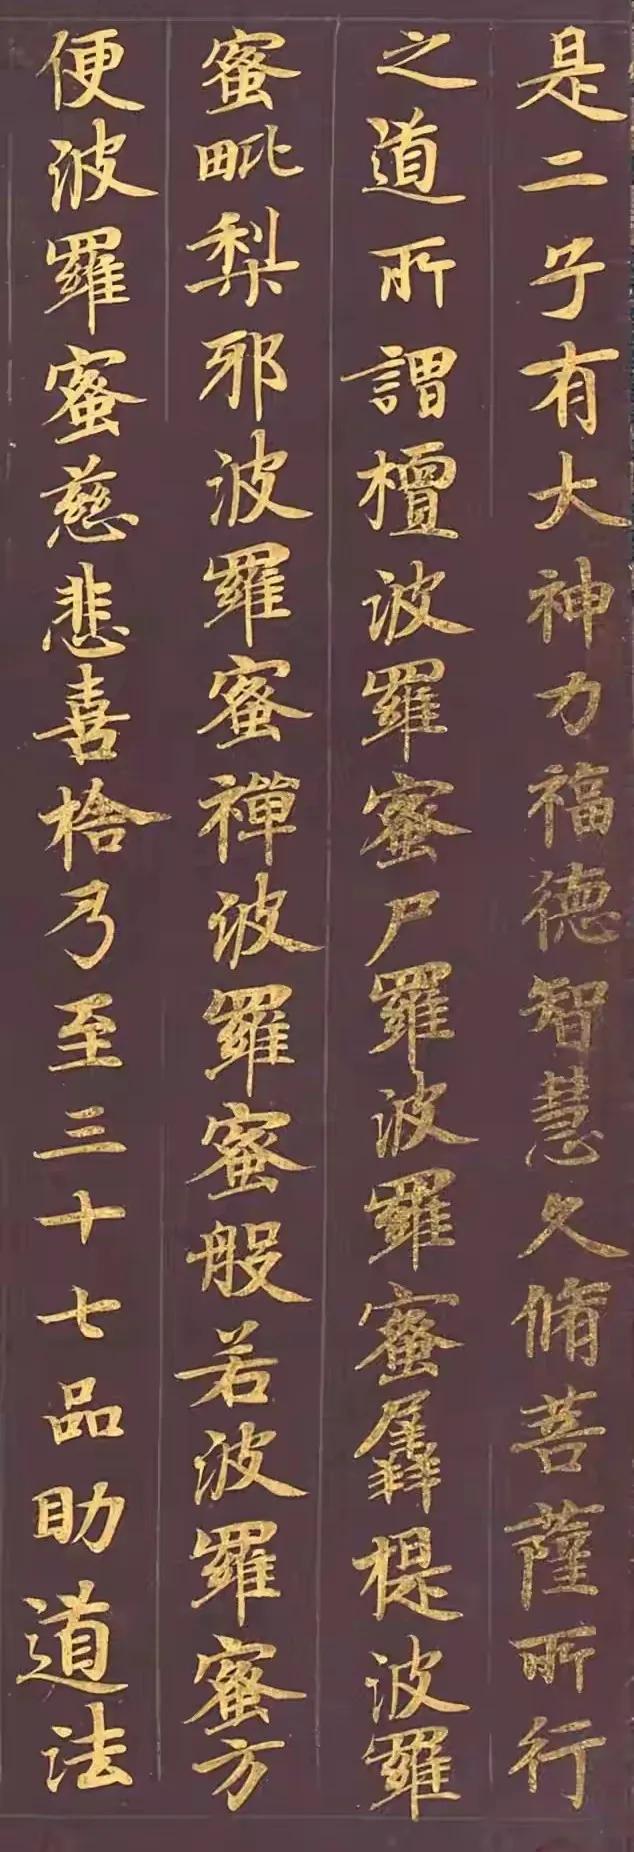 是二子有大神力福德智慧久脩菩薩所行
之道所謂檀波羅蜜尸羅波羅蜜羼提波羅
蜜毗梨耶波羅蜜禪波羅蜜般若波羅蜜方
便波羅蜜慈悲喜捨乃至三十七品助道法